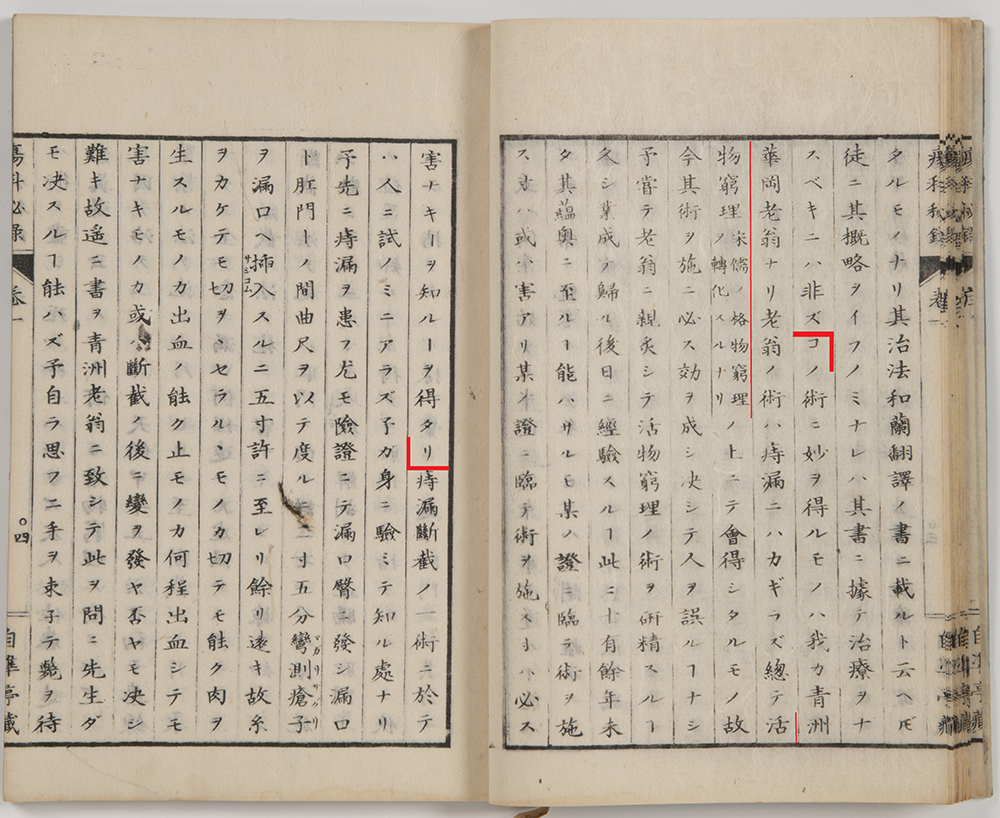 タルモノナリ其治法和蘭翻譯ノ書ニ載ルト云ヘ𪜈
徒ニ其概略ヲイフノミナレハ其書ニ據テ治療ヲナ
スベキニハ非ズコノ術ニ妙ヲ得ルモノハ我カ青洲
華岡老翁ナリ老翁ノ術ハ痔漏ニハカギラズ總テ活
物窮理宋儒ノ格物窮理ヲ轉化スルナリノ上ニテ會得シタルモノ故
今其術ヲ施ニ必ス効ヲ成シ决シテ人ヲ誤ルヿナシ
予嘗テ老翁ニ親炙シテ活物窮理ノ術ヲ研精スルヿ
久シ業成テ歸ル後日ニ經驗スルヿ此ニ十有餘年未
タ其蘊奥ニ至ルヿ能ハサルモ某ノ證ニ臨テ術ヲ施
スオハ或ハ害アリ某ノ證ニ臨テ術ヲ施スオハ必ス
害ナキヿヲ知ルヿヲ得タリ痔漏斷截ノ一術ニ於テ
ハ人ニ試ノミニアラズ予ガ身ニ驗ミテ知ル處ナリ
予先ニ痔漏ヲ患フ尤モ險證ニテ漏口臀ニ發シ漏口
ト肛門トノ間曲尺ヲ以テ度ル二寸五分彎測瘡子
ヲ漏口ヘ挿入サシコムスルニ五寸許ニ至レリ餘リ遠キ故糸
ヲカケテモ切ヲヽセラルンモノカ切テモ能ク肉ヲ
生スルモノカ出血ノ能ク止モノカ何程出血シテモ
害ナキモノカ或ハ斷截ノ後ニ變ヲ發ヤ否ヤモ决シ
難キ故遥ニ書ヲ青洲老翁ニ致シテ此ヲ問ニ先生ダ
モ决スルヿ能ハズ予自ラ思フニ手ヲ束子テ斃ヲ待
瘍科必録
卷一
〇四
自準亭藏